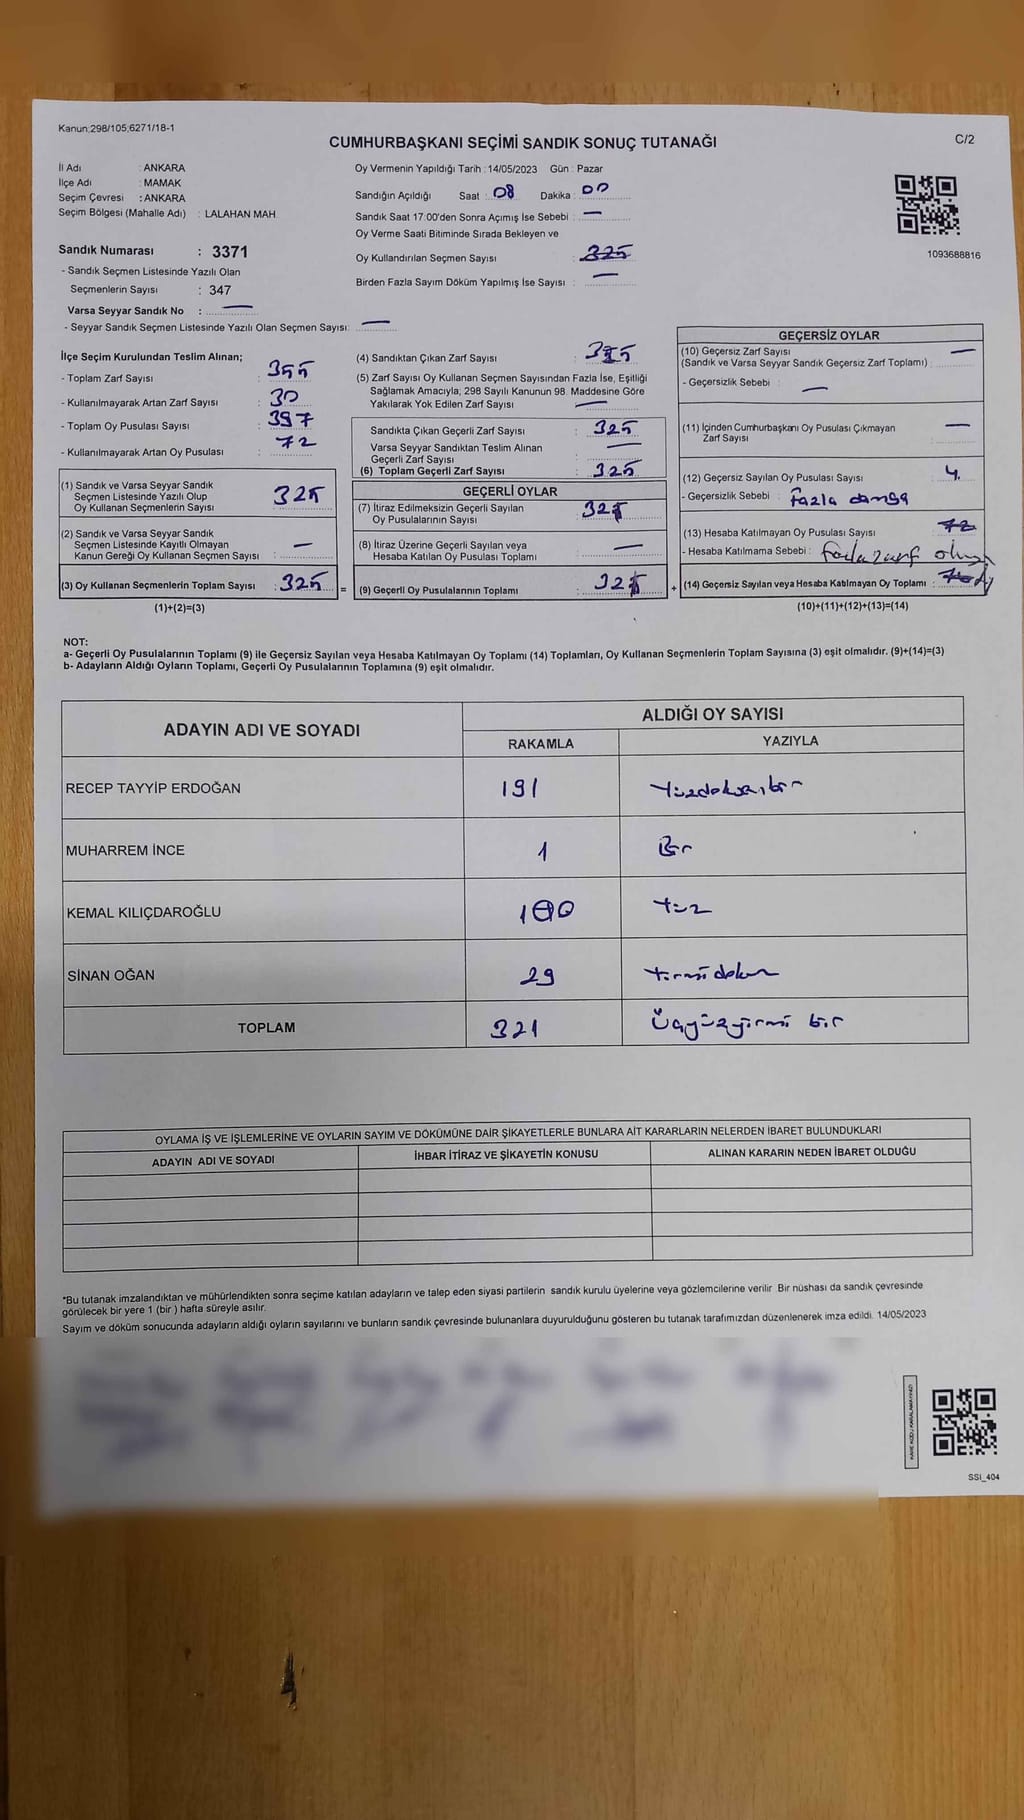 Kanun;298/105;6271/18-1
CUMHURBAŞKANI SEÇİMİ SANDIK SONUÇ TUTANAĞI
C/2
İl Adı : ANKARA
İlçe Adı : MAMAK
Seçim Çevresi : ANKARA
Seçim Bölgesi (Mahalle Adı) : LALAHAN MAH.
Sandık Numarası : 3371
- Sandık Seçmen Listesinde Yazılı Olan
Seçmenlerin Sayısı : 347
Varsa Seyyar Sandık No : —
- Seyyar Sandık Seçmen Listesinde Yazılı Olan Seçmen Sayısı: —
Oy Vermenin Yapıldığı Tarih : 14/05/2023 Gün : Pazar
Sandığın Açıldığı Saat : 08 Dakika : 00
Sandık Saat 17:00'den Sonra Açımış İse Sebebi : —
Oy Verme Saati Bitiminde Sırada Bekleyen ve
Oy Kullandırılan Seçmen Sayısı : 325
Birden Fazla Sayım Döküm Yapılmış İse Sayısı : —
1093688816
İlçe Seçim Kurulundan Teslim Alınan;
- Toplam Zarf Sayısı : 355
- Kullanılmayarak Artan Zarf Sayısı : 30
- Toplam Oy Pusulası Sayısı : 397
- Kullanılmayarak Artan Oy Pusulası : 72
(1) Sandık ve Varsa Seyyar Sandık
Seçmen Listesinde Yazılı Olup
Oy Kullanan Seçmenlerin Sayısı : 325
(2) Sandık ve Varsa Seyyar Sandık
Seçmen Listesinde Kayıtlı Olmayan
Kanun Gereği Oy Kullanan Seçmen Sayısı : —
(3) Oy Kullanan Seçmenlerin Toplam Sayısı : 325 =
(1)+(2)=(3)
(4) Sandıktan Çıkan Zarf Sayısı : 325
(5) Zarf Sayısı Oy Kullanan Seçmen Sayısından Fazla İse, Eşitliği
Sağlamak Amacıyla; 298 Sayılı Kanunun 98. Maddesine Göre
Yakılarak Yok Edilen Zarf Sayısı : —
Sandıkta Çıkan Geçerli Zarf Sayısı : 325
Varsa Seyyar Sandıktan Teslim Alınan
Geçerli Zarf Sayısı : —
(6) Toplam Geçerli Zarf Sayısı : 325
GEÇERLİ OYLAR
(7) İtiraz Edilmeksizin Geçerli Sayılan
Oy Pusulalarının Sayısı : 321
(8) İtiraz Üzerine Geçerli Sayılan veya
Hesaba Katılan Oy Pusulası Toplamı : —
(9) Geçerli Oy Pusulalarının Toplamı : 321 +
GEÇERSİZ OYLAR
(10) Geçersiz Zarf Sayısı —
(Sandık ve Varsa Seyyar Sandık Geçersiz Zarf Toplamı) :
- Geçersizlik Sebebi : —
(11) İçinden Cumhurbaşkanı Oy Pusulası Çıkmayan —
Zarf Sayısı
(12) Geçersiz Sayılan Oy Pusulası Sayısı : 4.
- Geçersizlik Sebebi : fazla damga
(13) Hesaba Katılmayan Oy Pusulası Sayısı : 72
- Hesaba Katılmama Sebebi : fazla zarf
(14) Geçersiz Sayılan veya Hesaba Katılmayan Oy Toplamı :
(10)+(11)+(12)+(13)=(14)
NOT:
a- Geçerli Oy Pusulalarının Toplamı (9) ile Geçersiz Sayılan veya Hesaba Katılmayan Oy Toplamı (14) Toplamları, Oy Kullanan Seçmenlerin Toplam Sayısına (3) eşit olmalıdır. (9)+(14)=(3)
b- Adayların Aldığı Oyların Toplamı, Geçerli Oy Pusulalarının Toplamına (9) eşit olmalıdır.
ADAYIN ADI VE SOYADI
ALDIĞI OY SAYISI
RAKAMLA YAZIYLA
RECEP TAYYİP ERDOĞAN 191 Yüzdoksanbir
MUHARREM İNCE 1 Bir
KEMAL KILIÇDAROĞLU 100 Yüz
SİNAN OĞAN 29 Yirmidokuz
TOPLAM 321 Üçyüzyirmi bir
OYLAMA İŞ VE İŞLEMLERİNE VE OYLARIN SAYIM VE DÖKÜMÜNE DAİR ŞİKAYETLERLE BUNLARA AİT KARARLARIN NELERDEN İBARET BULUNDUKLARI
ADAYIN ADI VE SOYADI İHBAR İTİRAZ VE ŞİKAYETİN KONUSU ALINAN KARARIN NEDEN İBARET OLDUĞU
*Bu tutanak imzalandıktan ve mühürlendikten sonra seçime katılan adayların ve talep eden siyasi partilerin sandık kurulu üyelerine veya gözlemcilerine verilir. Bir nüshası da sandık çevresinde
görülecek bir yere 1 (bir ) hafta süreyle asılır.
Sayım ve döküm sonucunda adayların aldığı oyların sayılarını ve bunların sandık çevresinde bulunanlara duyurulduğunu gösteren bu tutanak tarafımızdan düzenlenerek imza edildi. 14/05/2023
KARE KODU KARALAMAYINIZ!
SSİ_404